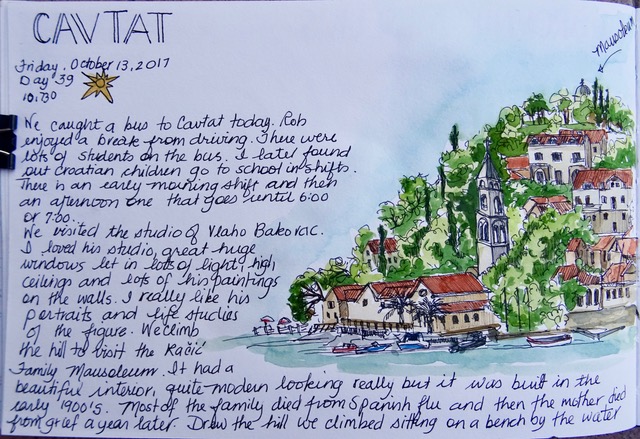 CAVTAT
Mausoleum
Friday, October 13, 2017
Day 39
10:30
We caught a bus to Cavtat today. Rob
enjoyed a break from driving. There were
lots of students on the bus. I later found
out Croatian children go to school in shifts.
There is an early morning shift and then
an afternoon one that goes until 6:00
or 7:00.
We visited the studio of Vlaho Bakovac.
I loved his studio, great huge
windows let in lots of light, high
ceilings and lots of his paintings
on the walls. I really like his
portraits and life studies
of the figure. We climb
the hill to visit the Račić
Family Mausoleum. It had a
beautiful interior, quite modern looking really but it was built in the
early 1900's. Most of the family died from Spanish flu and then the mother died
from grief a year later. Drew the hill we climbed sitting on a bench by the water